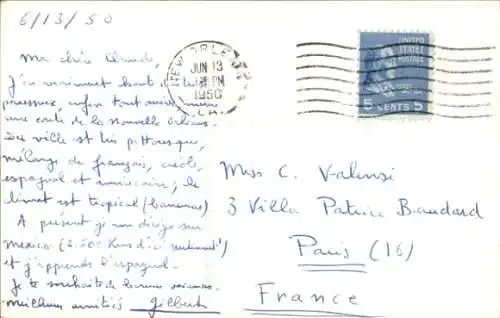 6/13/50
Ma chère Claude,
J'ai vraiment honte de
paresseux, enfin tout
une carte de la Nouvelle Orléans.
La ville est très pittoresque,
mélange de français, créole,
espagnol et américain ; le
climat est tropical (bananes)
A présent je me dirige sur
Mexico (2.500 Kms d'ici seulement !)
et j'apprends l'espagnol.
Je te souhaite de bonnes vacances.
amitiés Gilbert
NEW ORLE
JUN 13
PM
1950
LA.
UNITED
STATES
POSTAGE
5 CENTS 5
Miss C. Valensi
3 Villa Patrice Baudard
Paris (16)
France